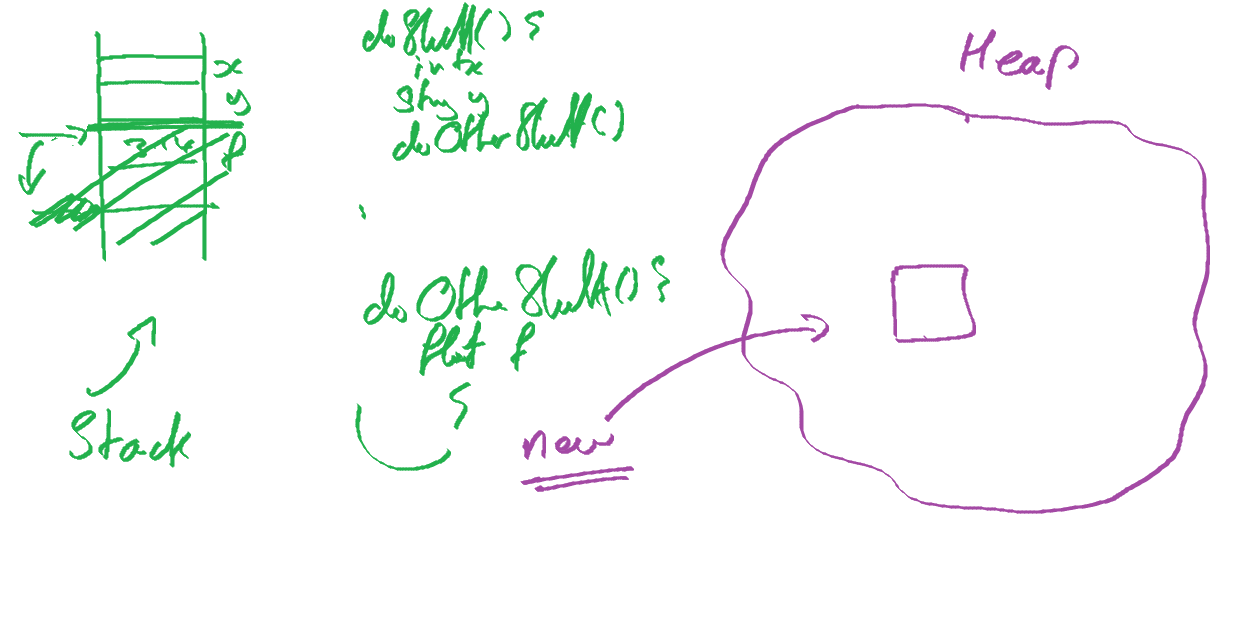 x
y
3.14
f
Stack
doStuff() {
int x
string y
doOtherStuff()
doOtherStuff() {
float f
}
new
Heap